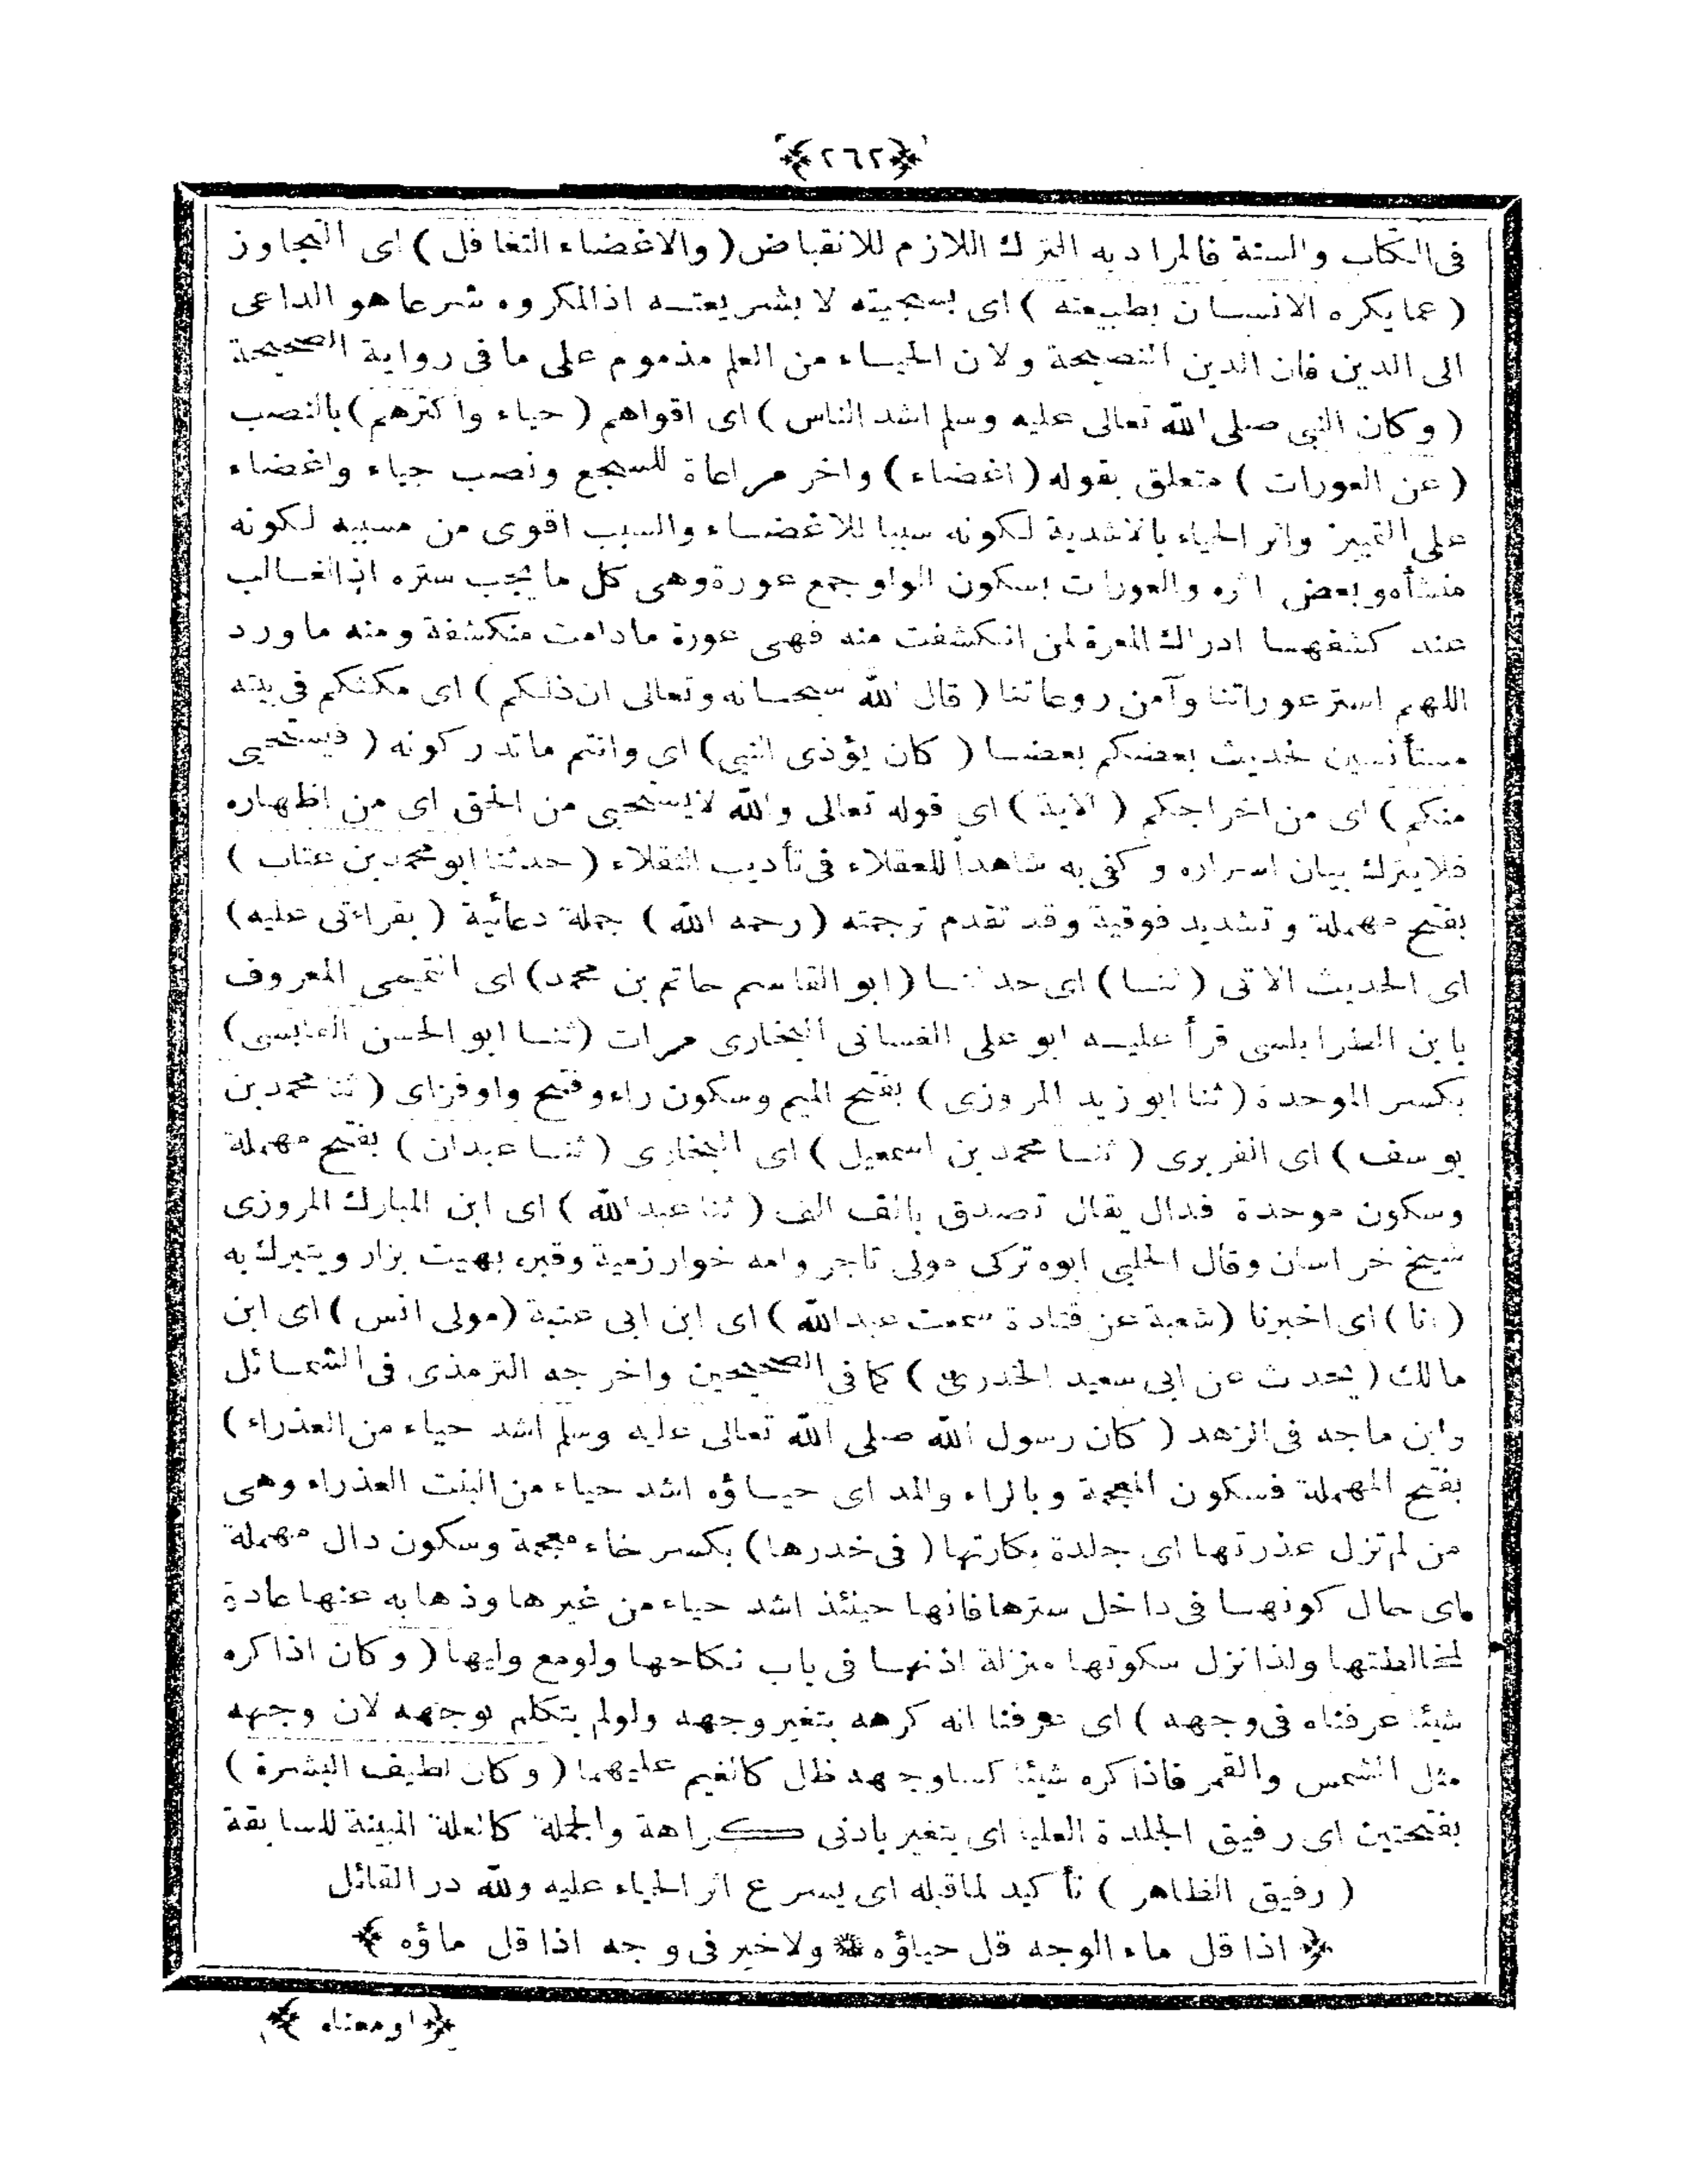 ﴿٢٦٢﴾
فى الكتاب والسنة فالمراد به الترك اللازم للانقباض (والاغضاء التغافل) اى التجاوز
(عما يكره الانسان بطبيعته) اى بسجيته لا بشريعته اذ المكروه شرعا هو الداعى
الى الدين فان الدين النصيحة ولان الحياء من العلم مذموم على ما فى رواية الصحيحة
(وكان النبى صلى الله تعالى عليه وسلم اشد الناس) اى اقواهم (حياء واكثرهم) بالنصب
(عن العورات) متعلق بقوله (اغضاء) واخر مراعاة للسجع ونصب حياء واغضاء
على التمييز واثر الحياء بالاشدية لكونه سببا للاغضاء والسبب اقوى من مسببه لكونه
منشأه وبعض اثره والعورات بسكون الواو جمع عورة وهى كل ما يجب ستره اذ الغالب
عند كشفها ادراك المعرة لمن انكشفت منه فهى عورة مادامت منكشفة ومنه ماورد
اللهم استر عوراتنا وآمن روعاتنا (قال الله سبحانه وتعالى ان ذلكم) اى مكثكم فى بيته
مستأنسين لحديث بعضكم بعضا (كان يؤذى النبى) اى وانتم ماتدركونه (فيستحيى
منكم) اى من اخراجكم (الآية) اى قوله تعالى والله لايستحيى من الحق اى من اظهاره
فلا يترك بيان اسراره وكفى به شاهدا للعقلاء فى تأديب الثقلاء (حدثنا ابو محمد بن عتاب)
بفتح مهملة وتشديد فوقية وقد تقدم ترجمته (رحمه الله) جملة دعائية (بقراءتى عليه)
اى الحديث الاتى (ثنا) اى حدثنا (ابو القاسم حاتم بن محمد) اى التميمى المعروف
بابن الطرابلسى قرأ عليه ابو على الغسانى البخارى مرات (ثنا ابو الحسن القابسى)
بكسر الموحدة (ثنا ابوزيد المروزى) بفتح الميم وسكون راء وفتح واو فزاى (ثنا محمد بن
يوسف) اى الفربرى (ثنا محمد بن اسمعيل) اى البخارى (ثنا عبدان) بفتح مهملة
وسكون موحدة فدال يقال تصدق بالف الف (ثنا عبدالله) اى ابن المبارك المروزى
شيخ خراسان وقال الحلبى ابوه تركى مولى تاجر وامه خوارزمية وقبره بهيت يزار ويتبرك به
(انا) اى اخبرنا (شعبة عن قتادة سمعت عبدالله) اى ابن ابى عتبة (مولى انس) اى ابن
مالك (يحدث عن ابى سعيد الخدرى) كما فى الصحيحين واخرجه الترمذى فى الشمائل
وابن ماجه فى الزهد (كان رسول الله صلى الله تعالى عليه وسلم اشد حياء من العذراء)
بفتح المهملة فسكون المعجمة وبالراء والمد اى حياؤه اشد حياء من البنت العذراء وهى
من لم تزل عذرتها اى جلدة بكارتها (فى خدرها) بكسر خاء معجمة وسكون دال مهملة
اى حال كونها فى داخل سترها فانها حينئذ اشد حياء من غيرها وذهابه عنها عادة
لمخالطتها ولذا نزل سكوتها منزلة اذنها فى باب نكاحها ولو مع وليها (وكان اذا كره
شيئا عرفناه فى وجهه) اى عرفنا انه كرهه بتغير وجهه ولولم يتكلم بوجهه لان وجهه
مثل الشمس والقمر فاذا كره شيئا كسا وجهه ظل كالغيم عليهما (وكان لطيف البشرة)
بفتحتين اى رفيق الجلدة العليا اى يتغير بادنى كراهة والجملة كالعلة المبينة للسابقة
(رفيق الظاهر) تأكيد لماقبله اى يسرع اثر الحياء عليه ولله در القائل
﴿ اذا قل ماء الوجه قل حياؤه * ولا خير فى وجه اذا قل ماؤه ﴾
﴿ او معناه ﴾